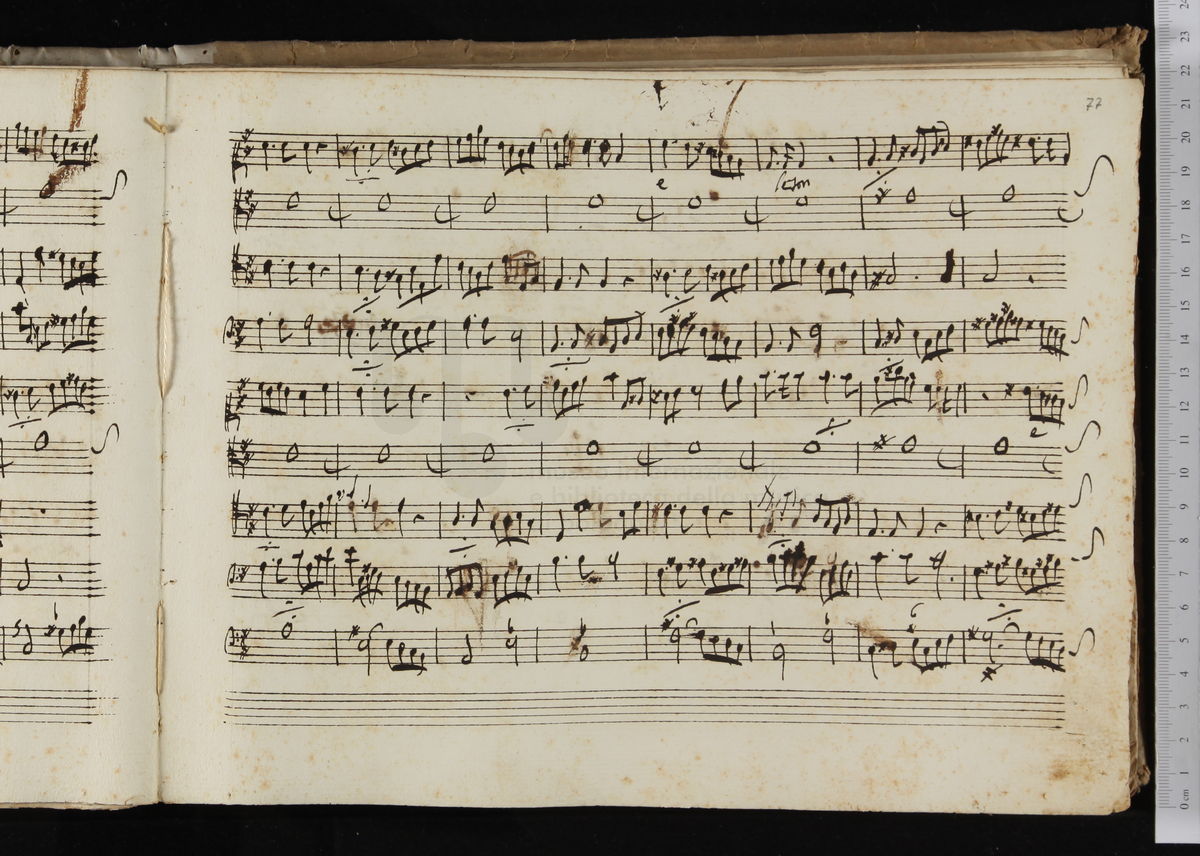 77
e leison
e
6
24
23
22
21
20
19
18
17
16
15
14
13
12
11
10
9
8
7
6
5
4
3
2
1
0 cm